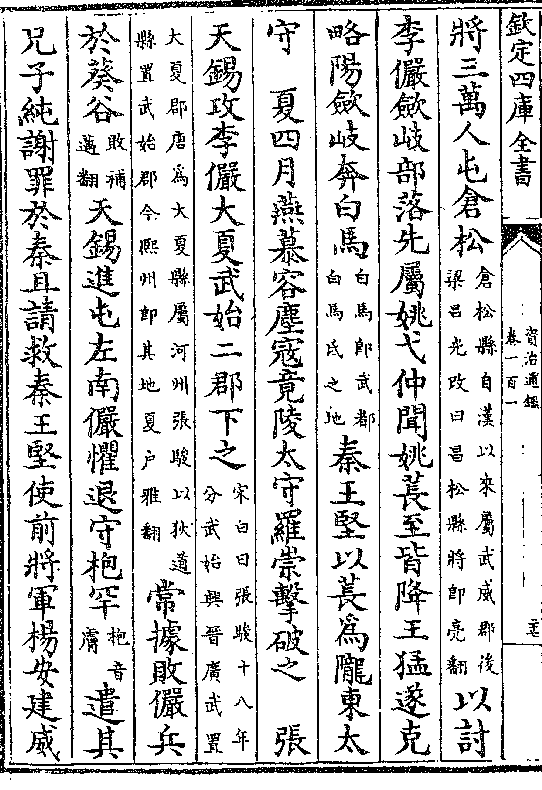 欽定四庫全書
資治通鑑
卷一百一
將三萬人屯倉松倉松縣自漢以來屬武威郡後梁呂光改曰昌松縣將即亮翻以討
李儼斂岐部落先屬姚弋仲聞姚萇至皆降王猛遂克
略陽斂岐奔白馬白馬即武都白馬氐之地秦王堅以萇為隴東太
守 夏四月燕慕容塵寇竟陵太守羅崇擊破之 張
天錫攻李儼大夏武始二郡下之宋白曰張駿十八年分武始興晉廣武置
大夏郡唐為大夏縣屬河州張駿以狄道縣置武始郡今熙州即其地夏户雅翻常據敗儼兵
於葵谷敗補邁翻天錫進屯左南儼懼退守枹罕枹音膚遣其
兄子純謝罪於秦且請救秦王堅使前將軍楊安建威